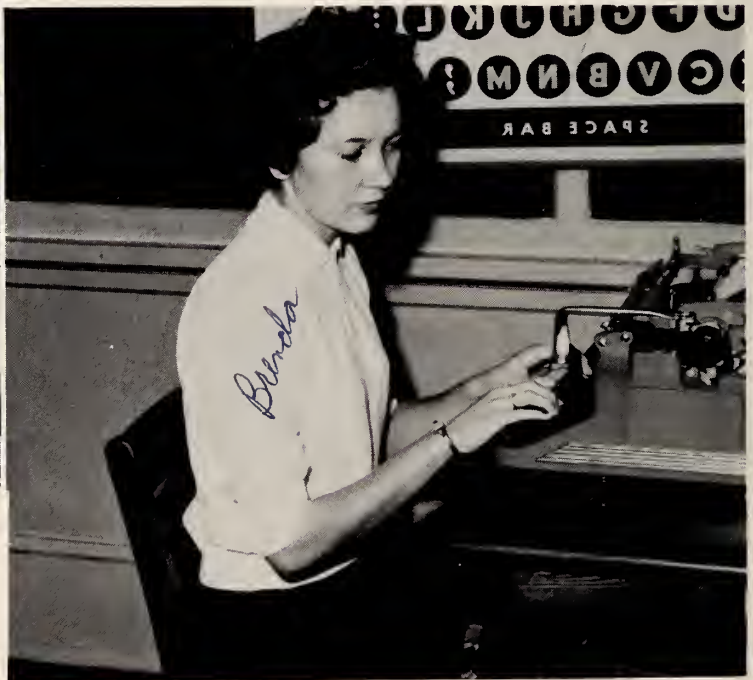 D F G H J K L
C V B N M ,
SPACE BAR
Brenda